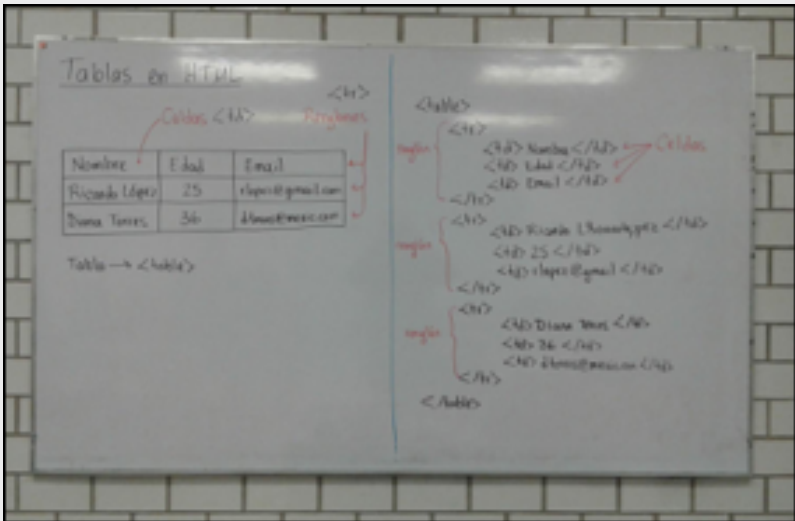 Tablas en HTML
<tr>
Celdas <td> Renglones
Nombre Edad Email
Ricardo López 25 rlopez@gmail.com
Diana Torres 36
Tabla → <table>
<table>
renglón
<tr>
<td> Nombre </td>
<td> Edad </td>
<td> Email </td>
Celdas
</tr>
renglón
<tr>
<td> Ricardo </td>
<td> 25 </td>
<td> rlopez@gmail </td>
</tr>
renglón
<tr>
<td> Diana Torres </td>
<td> 36 </td>
<td> </td>
</tr>
</table>